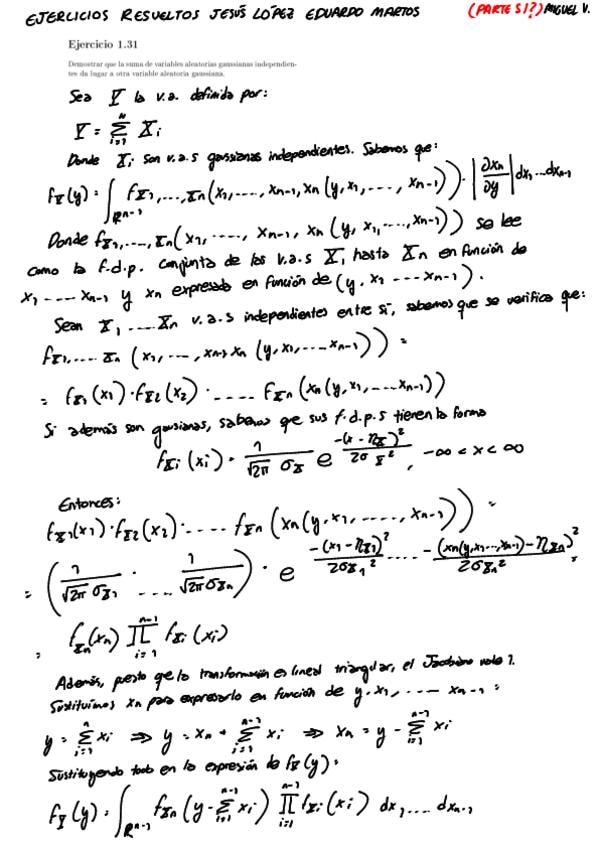 EJERCICIOS RESUELTOS JESÚS LÓPEZ EDUARDO MARTOS (PARTE SI?) MIGUEL V.
Ejercicio 1.31
Demostrar que la suma de variables aleatorias gaussianas independien-
tes da lugar a otra variable aleatoria gaussiana.
Sea Y la v.a. definida por:
Y = Σ_{i=1}^{n} X_i
Donde X_i son v.a.s gaussianas independientes. Sabemos que:
f_Y(y) = ∫_{R^{n-1}} f_{X1,...,Xn}(x1, ..., xn-1, xn(y, x1, ..., xn-1)) · |∂xn/∂y| dx1...dxn-1
Donde f_{X1,...,Xn}(x1, ..., xn-1, xn(y, x1, ..., xn-1)) se lee
como la f.d.p. conjunta de las v.a.s X1 hasta Xn en función de
x1 ---- xn-1 y xn expresado en función de (y, x1 --- xn-1).
Sean X1, .... Xn v.a.s independientes entre sí, sabemos que se verifica que:
f_{X1,...,Xn}(x1, ..., xn-1, xn(y, x1, ... xn-1)) =
= f_{X1}(x1) · f_{X2}(x2) · ..... f_{Xn}(xn(y, x1, ... xn-1))
Si además son gausianas, sabemos que sus f.d.p.s tienen la forma
f_{Xi}(xi) = 1/(√2π σ_X) e^{-(x - η_X)²/2σ_X²}, -∞ < x < ∞
Entonces:
f_{X1}(x1) · f_{X2}(x2) · ..... f_{Xn}(xn(y, x1, ...., xn-1)) =
= (1/(√2π σ_{X1}) · .... 1/(√2π σ_{Xn})) · e^{-(x1 - η_{X1})²/2σ_{X1}² .... -(xn(y, x1, ..., xn-1) - η_{Xn})²/2σ_{Xn}²} =
= f_{Xn}(xn) ∏_{i=1}^{n-1} f_{Xi}(xi)
Además, puesto que la transformación es lineal triangular, el Jacobiano vale 1.
Sustituimos xn para expresarlo en función de y, x1, ... xn-1 =
y = Σ_{i=1}^{n} xi ⇒ y = xn + Σ_{i=1}^{n-1} xi ⇒ xn = y - Σ_{i=1}^{n-1} xi
Sustituyendo todo en la expresión de f_Y(y):
f_Y(y) = ∫_{R^{n-1}} f_{Xn}(y - Σ_{i=1}^{n-1} xi) ∏_{i=1}^{n-1} f_{Xi}(xi) dx1 .... dxn-1